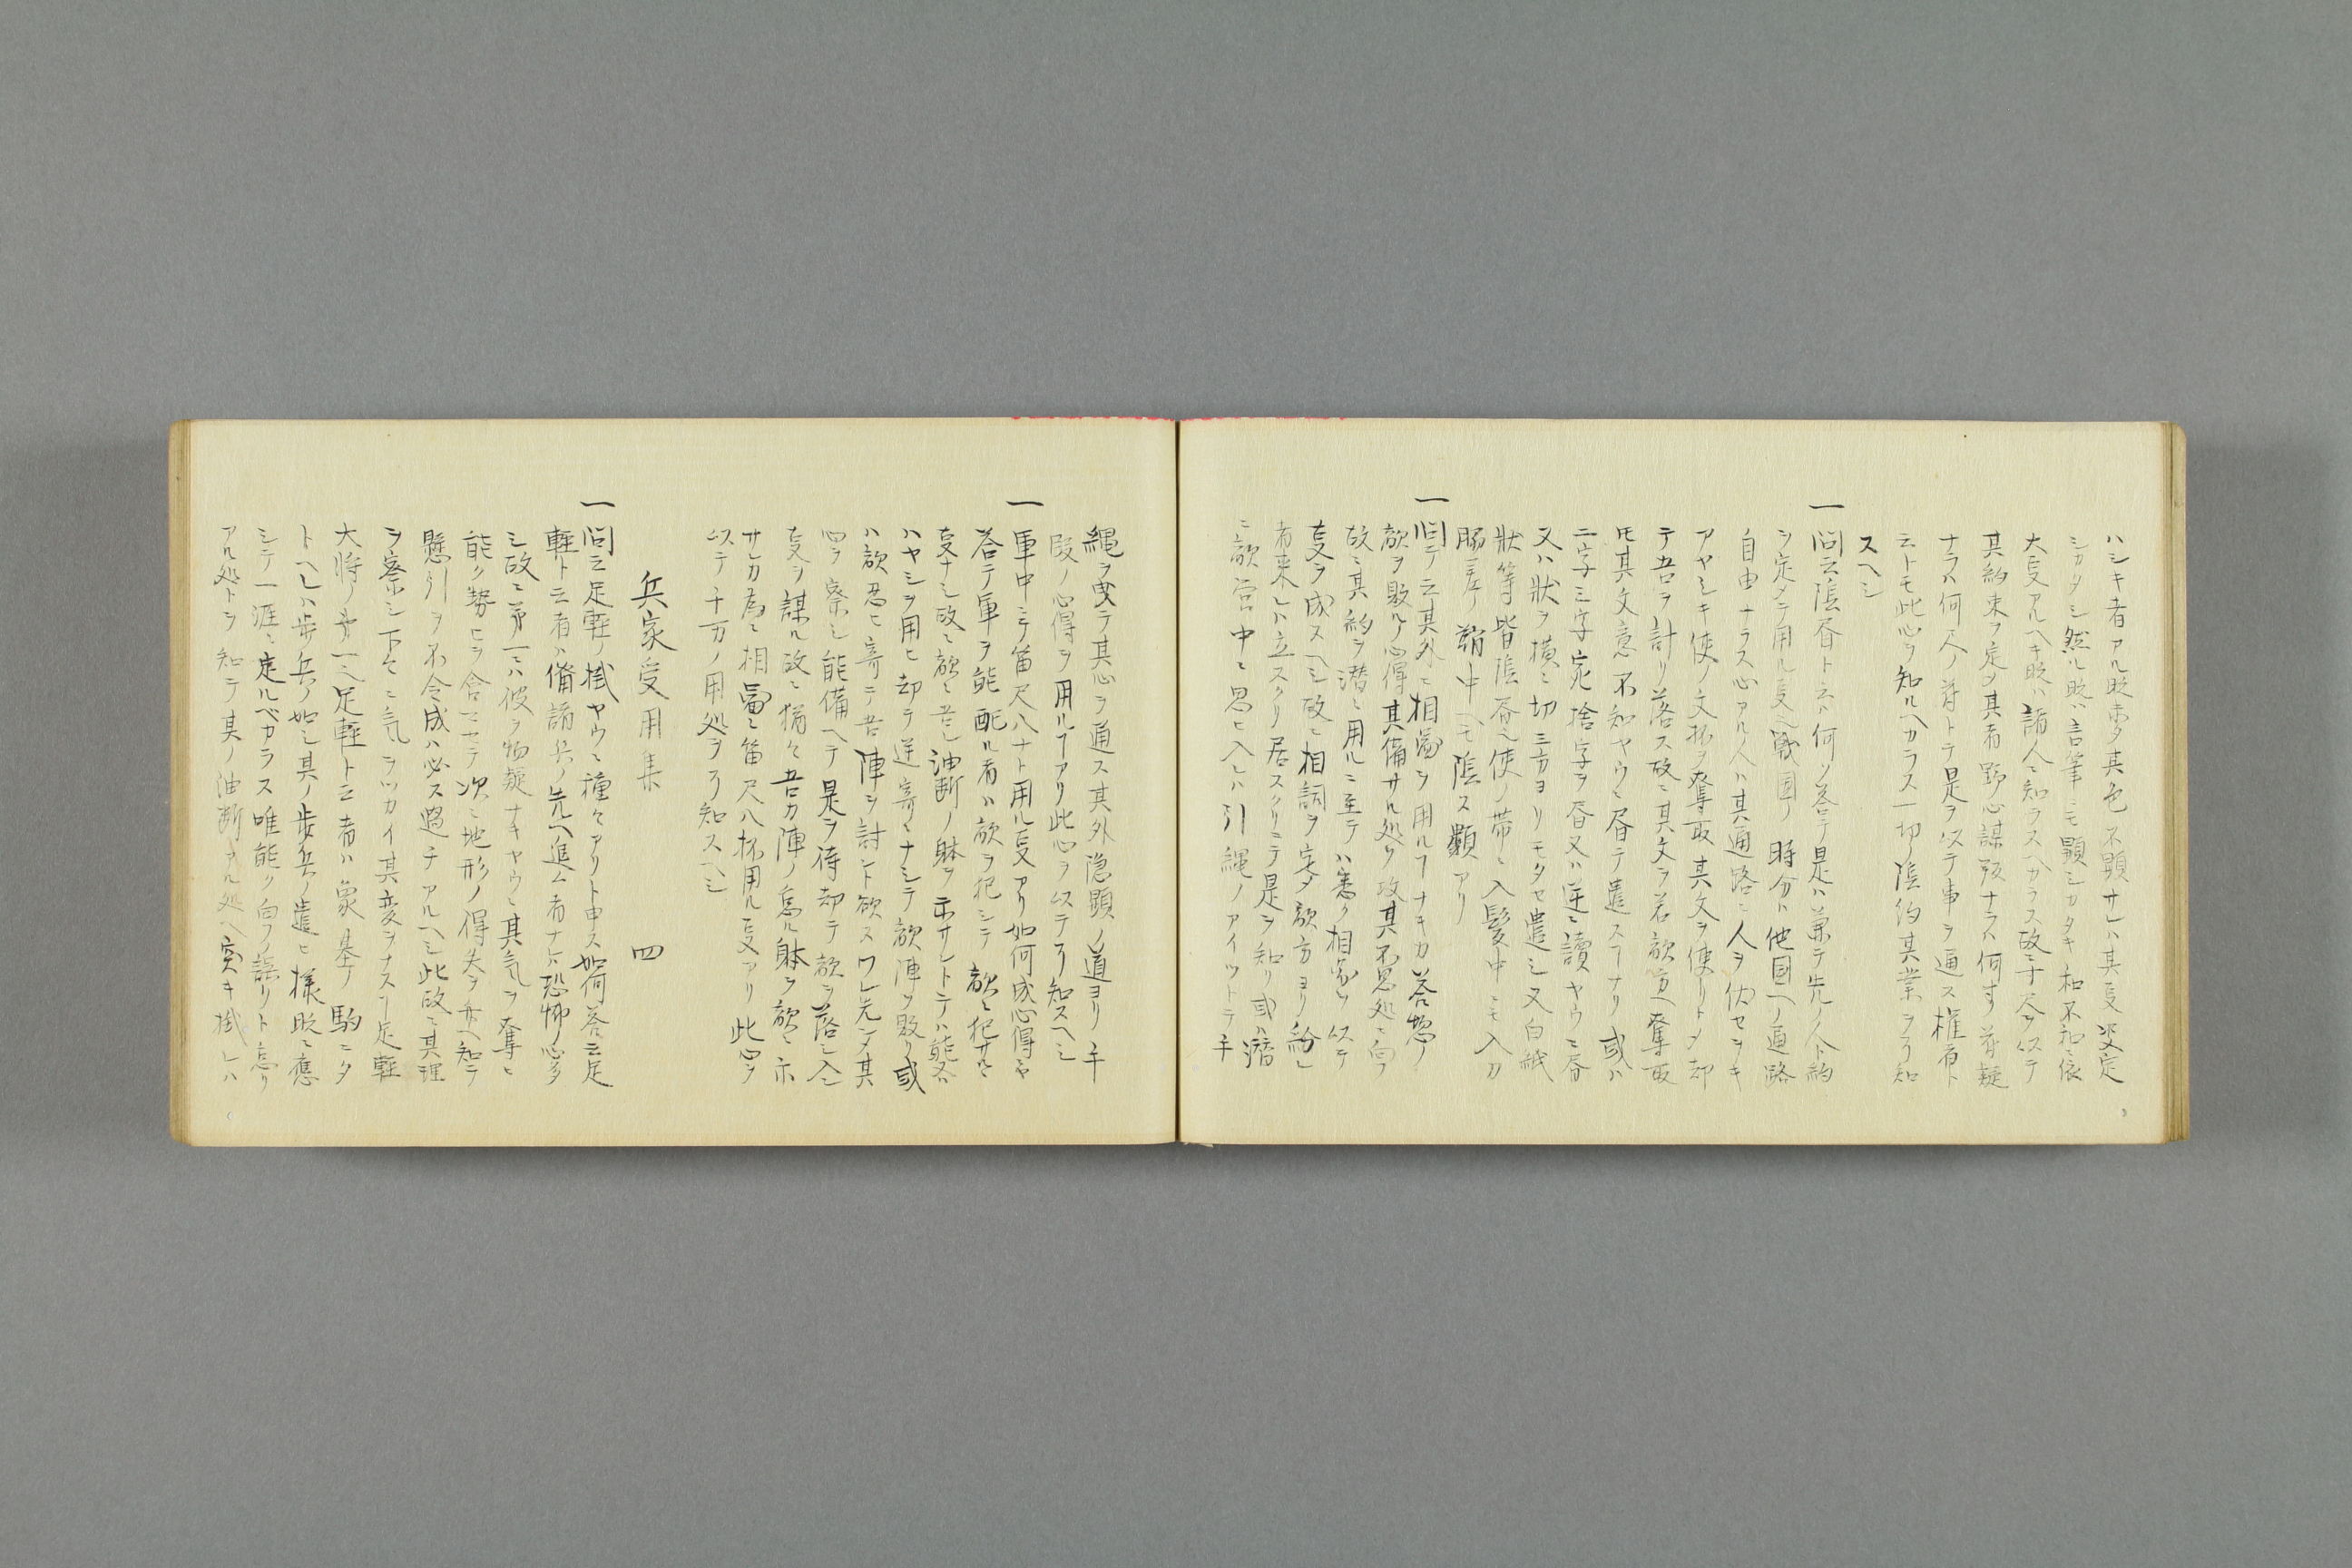 ハシキ者アル時事タ其色不顕サレハ其㕝决定
シカタシ然ル時ハ言筆ニモ顕シカタキ和不和ニ依
大㕝アルヘキ時ハ諸人ニ知ラスヘカラス故ニ手尺ヲ以テ
其約束ヲ定メ其者野心謀叛ナラハ何寸若疑
ナラハ何尺ノ若トテ是ヲ以テ事ヲ通ス権有ト
云トモ此心ヲ知ルヘカラス一切ノ陰約其業ヲヲリ知
スヘシ
一問云陰昏ト云ハ何ソ答テ是ハ兼テ先ノ人ト約
シ定メテ用ル㕝也戦国ノ時分ハ他国ヘノ通路
自由ナラス心アル人ハ其通路ニ人ヲ伏セヲキ
アヤシキ使ノ文抔ヲ奪取其文ヲ使リトメ却
テ吾ヲ計リ落ス故ニ其文ヲ若敵方ヘ奪取
ㇳモ其文意不知ヤウニ昏テ遣スヿナリ或ハ
二字三字宛捨字ヲ昏又ハ逆ニ讀ヤウニ昏
又ハ状ヲ横ニ切三方ヨリモタセ遣シ又白紙
状等皆陰昏也使ノ帯ニ入髪中ニモ入刀
脇差ノ鞘中ヘモ陰ス顯アリ
一問テ云其外ニ相圖ヲ用ルヿナキカ答惣ノ
敵ヲ敗ルノ心得其備サル処ヲ攻其不思処ニ向フ
故ニ其約ヲ潜ニ用ルニ至テハ悉ク相圖ヲ以テ
㕝ヲ成スヘシ故ニ相詞ヲ定メ敵方ヨリ紛レ
者来レハ立スクリ居スクリニテ是ヲ知リ或ハ潜
ニ敵営中ニ思ヒ入レハ引縄ノアイツトテ手
縄ヲ曳テ其心ヲ通ス其外隠顕ノ道ヨリ手
段ノ心得ヲ用ルヿアリ此心ヲ以テヲリ知スヘシ
一軍中ニテ笛尺八ナト用ル㕝アリ如何成心得ニヤ
答テ軍ヲ能配ル者ハ敵ヲ犯シテ敵ニ犯サルヽ
㕝ナシ故ニ敵ニ若シ油断ノ躰ヲ示サレトテハ能又ハ
ハヤシヲ用ヒ却テ逆寄ヲナシテ敵陣ヲ敗リ或
ハ敵忍ヒ寄テ吾陣ヲ討ント欲スワレ先シメ其
心ヲ察シ能備ヘテ是ヲ待却テ敵ヲ落シ入ル
㕝ヲ謀ル故ニ猶々吾カ陣ノ怠ル躰ヲ敵ニ示
サレカ為ニ相圖ニ笛尺八抔用ル㕝アリ此心ヲ
以テ千万ノ用処ヲヲリ知スヘシ
兵家受用集　四
一問云足軽ノ掛ヤウニ種々アリト申ス如何答云足
軽ト云者ハ備諸兵ノ先ヘ進ム者ナレハ恐怖ノ心多
シ故ニ第一ニハ彼ヲ物疑ナキヤウニ其気ヲ奪ヒ
能ク勢ヒヲ含マセテ次ニ地形ノ得失ヲ弁ヘ知テ
懸引ヲ不令成ハ必ス過チアルヘシ此故ニ其理
ヲ察シ下々ニ気ヲツカイ其変ヲナスヿ足軽
大将ノ第一也足軽ト云者ハ象棊ノ駒ニタ
トヘレハ歩ノ兵ノ如シ其ノ歩兵ノ遣ヒ様時ニ應
シテ一涯ニ定ルベカラス唯能ク向フノ誤リト怠リ
アル処トヲ知テ其ノ油断アル処ヘ突キ掛レハ